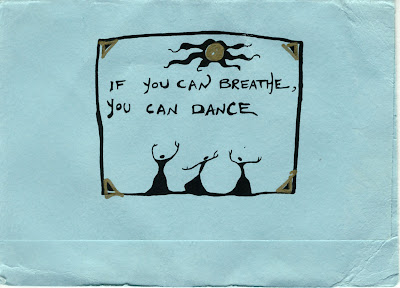 IF YOU CAN BREATHE,
YOU CAN DANCE